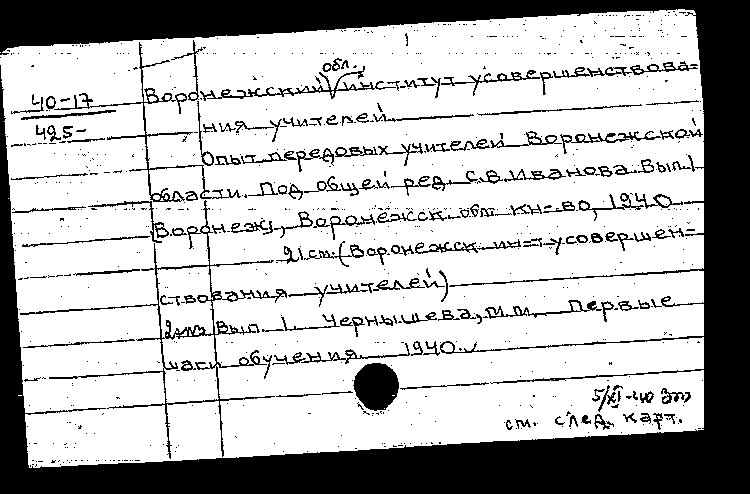 40-17
425-
обл.
Воронежский институт усовершенствова=
ния учителей.
Опыт передовых учителей Воронежской
области. Под общей ред. С.В. Иванова. Вып. 1
Воронеж, Воронежск. обл. кн-во, 1940
21 см. (Воронежск. ин-т усовершен=
ствования учителей)
Вып. 1. Чернышева, М.М. Первые
шаги обучения. 1940.
5/XI-40
см. след. карт.